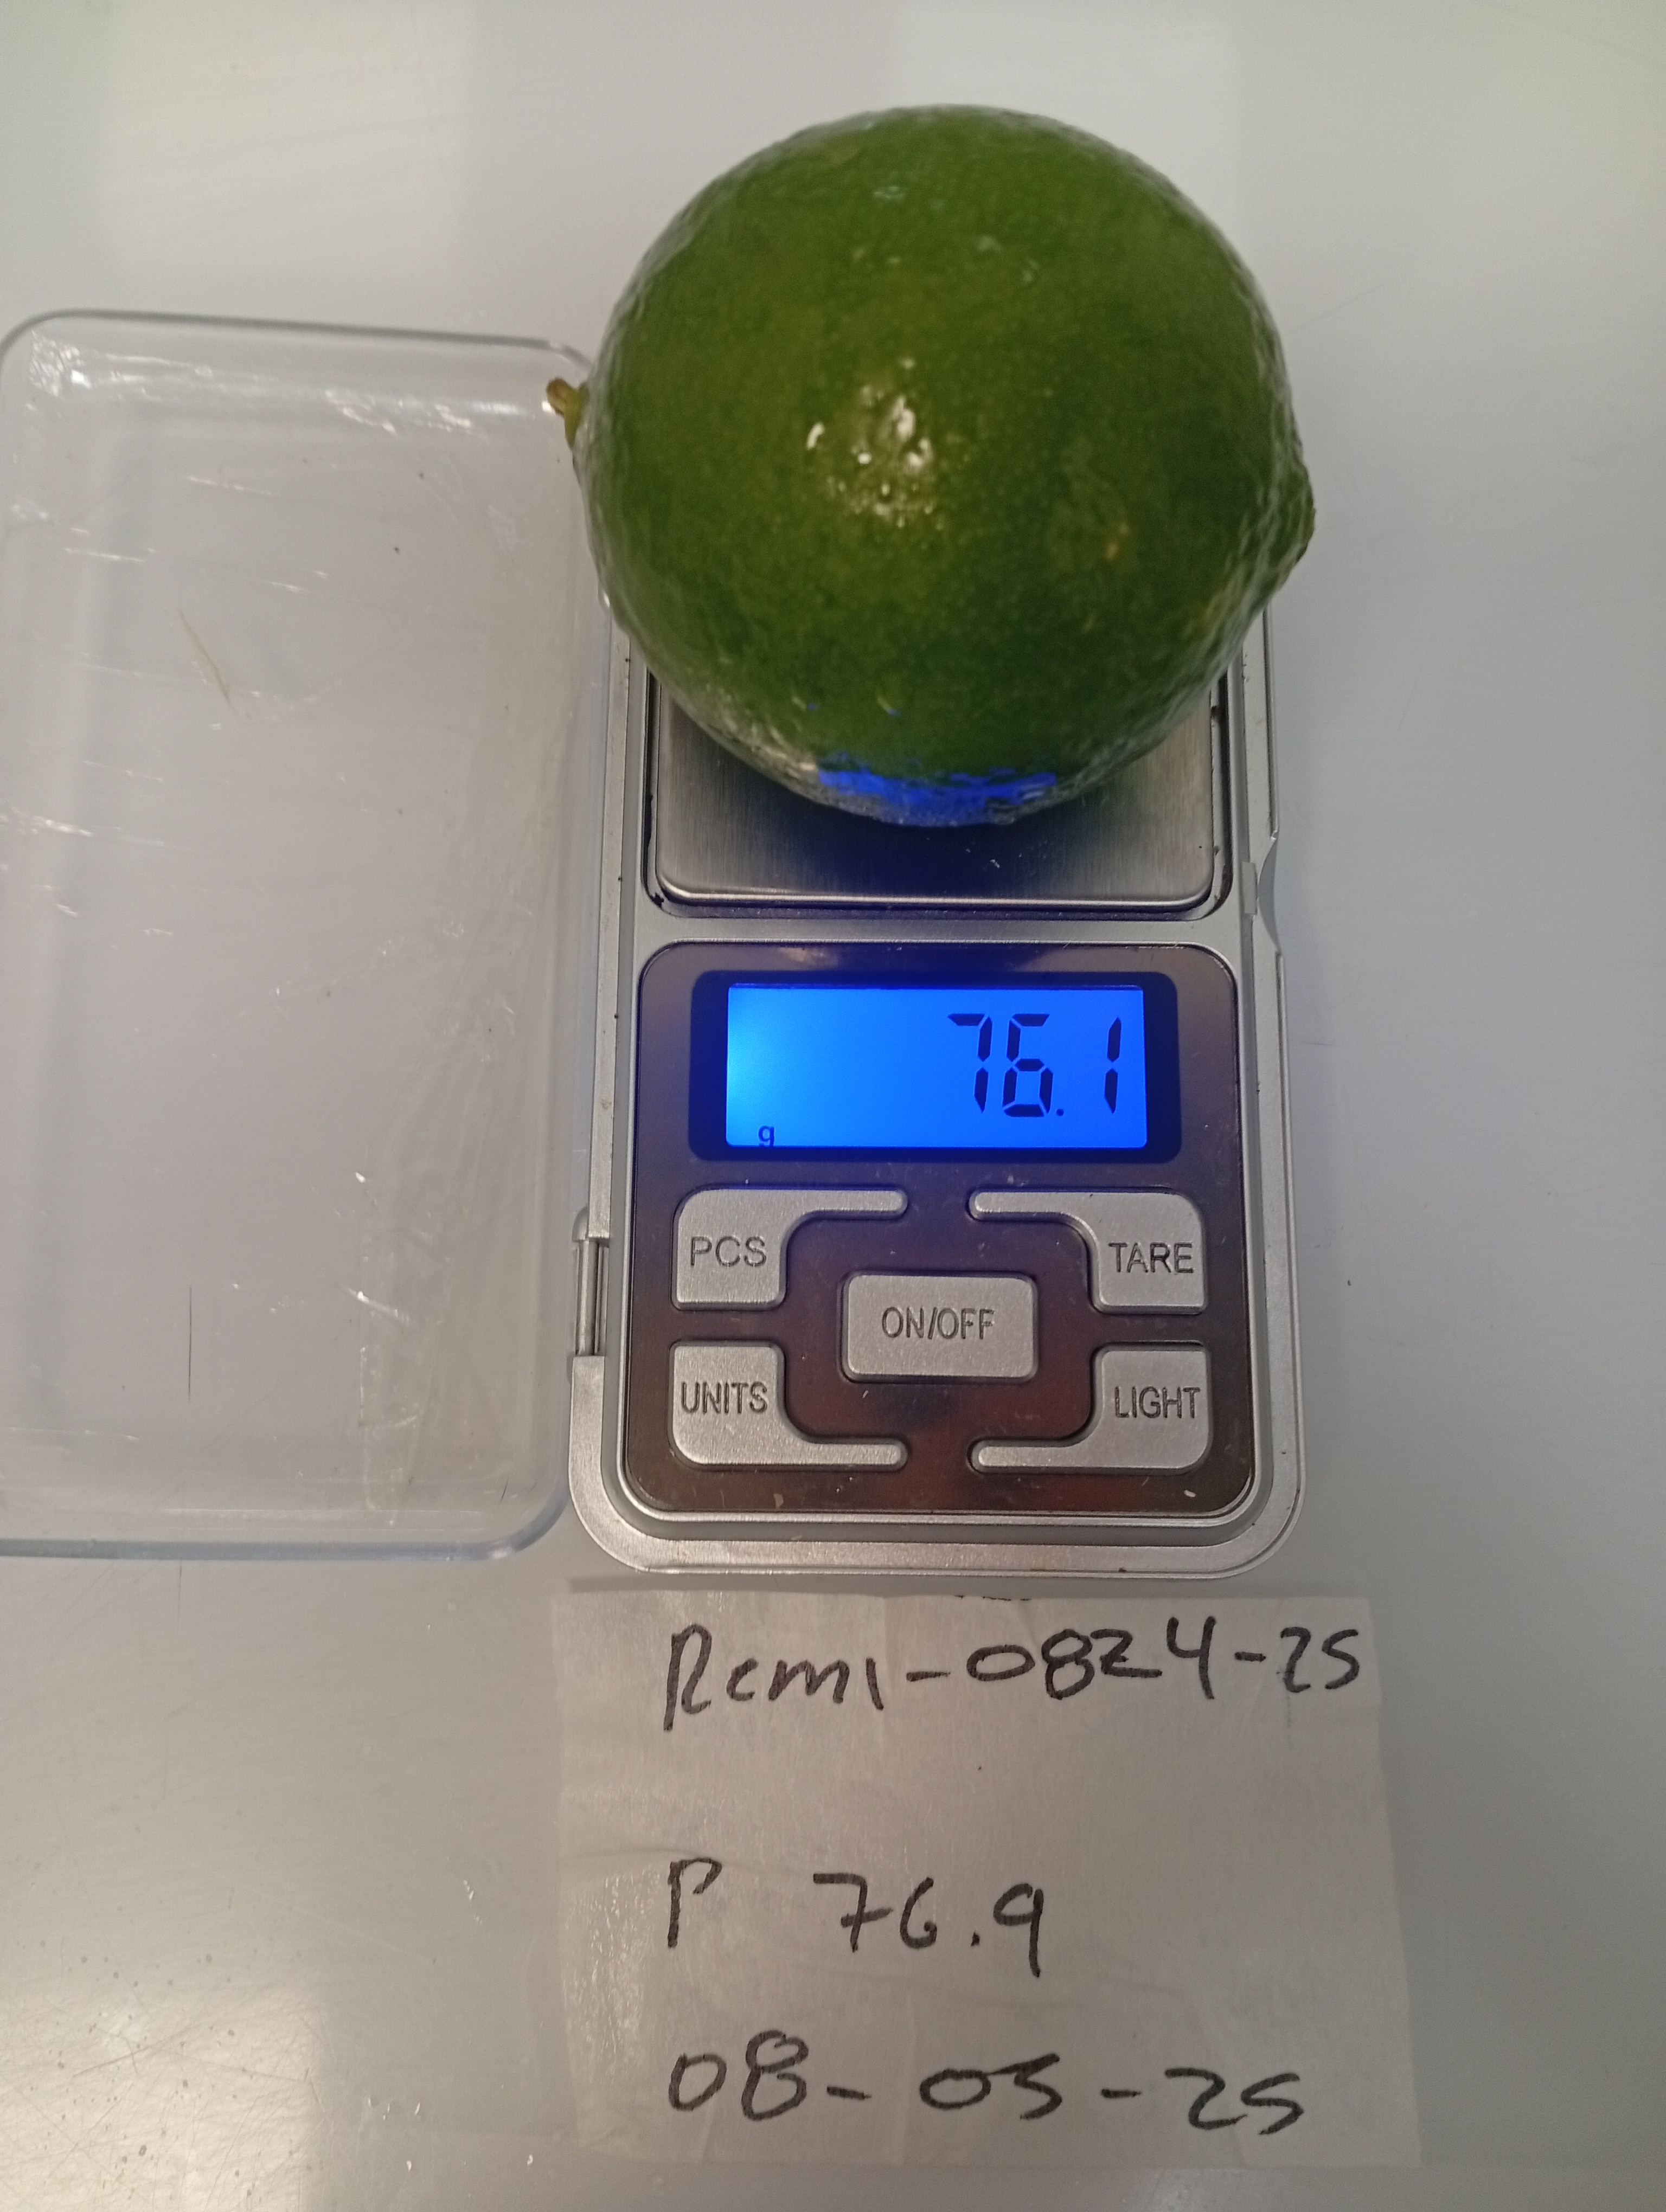 76.1
g
PCS
TARE
ON/OFF
UNITS
LIGHT
Remi-0824-25
P 76.9
08-05-25